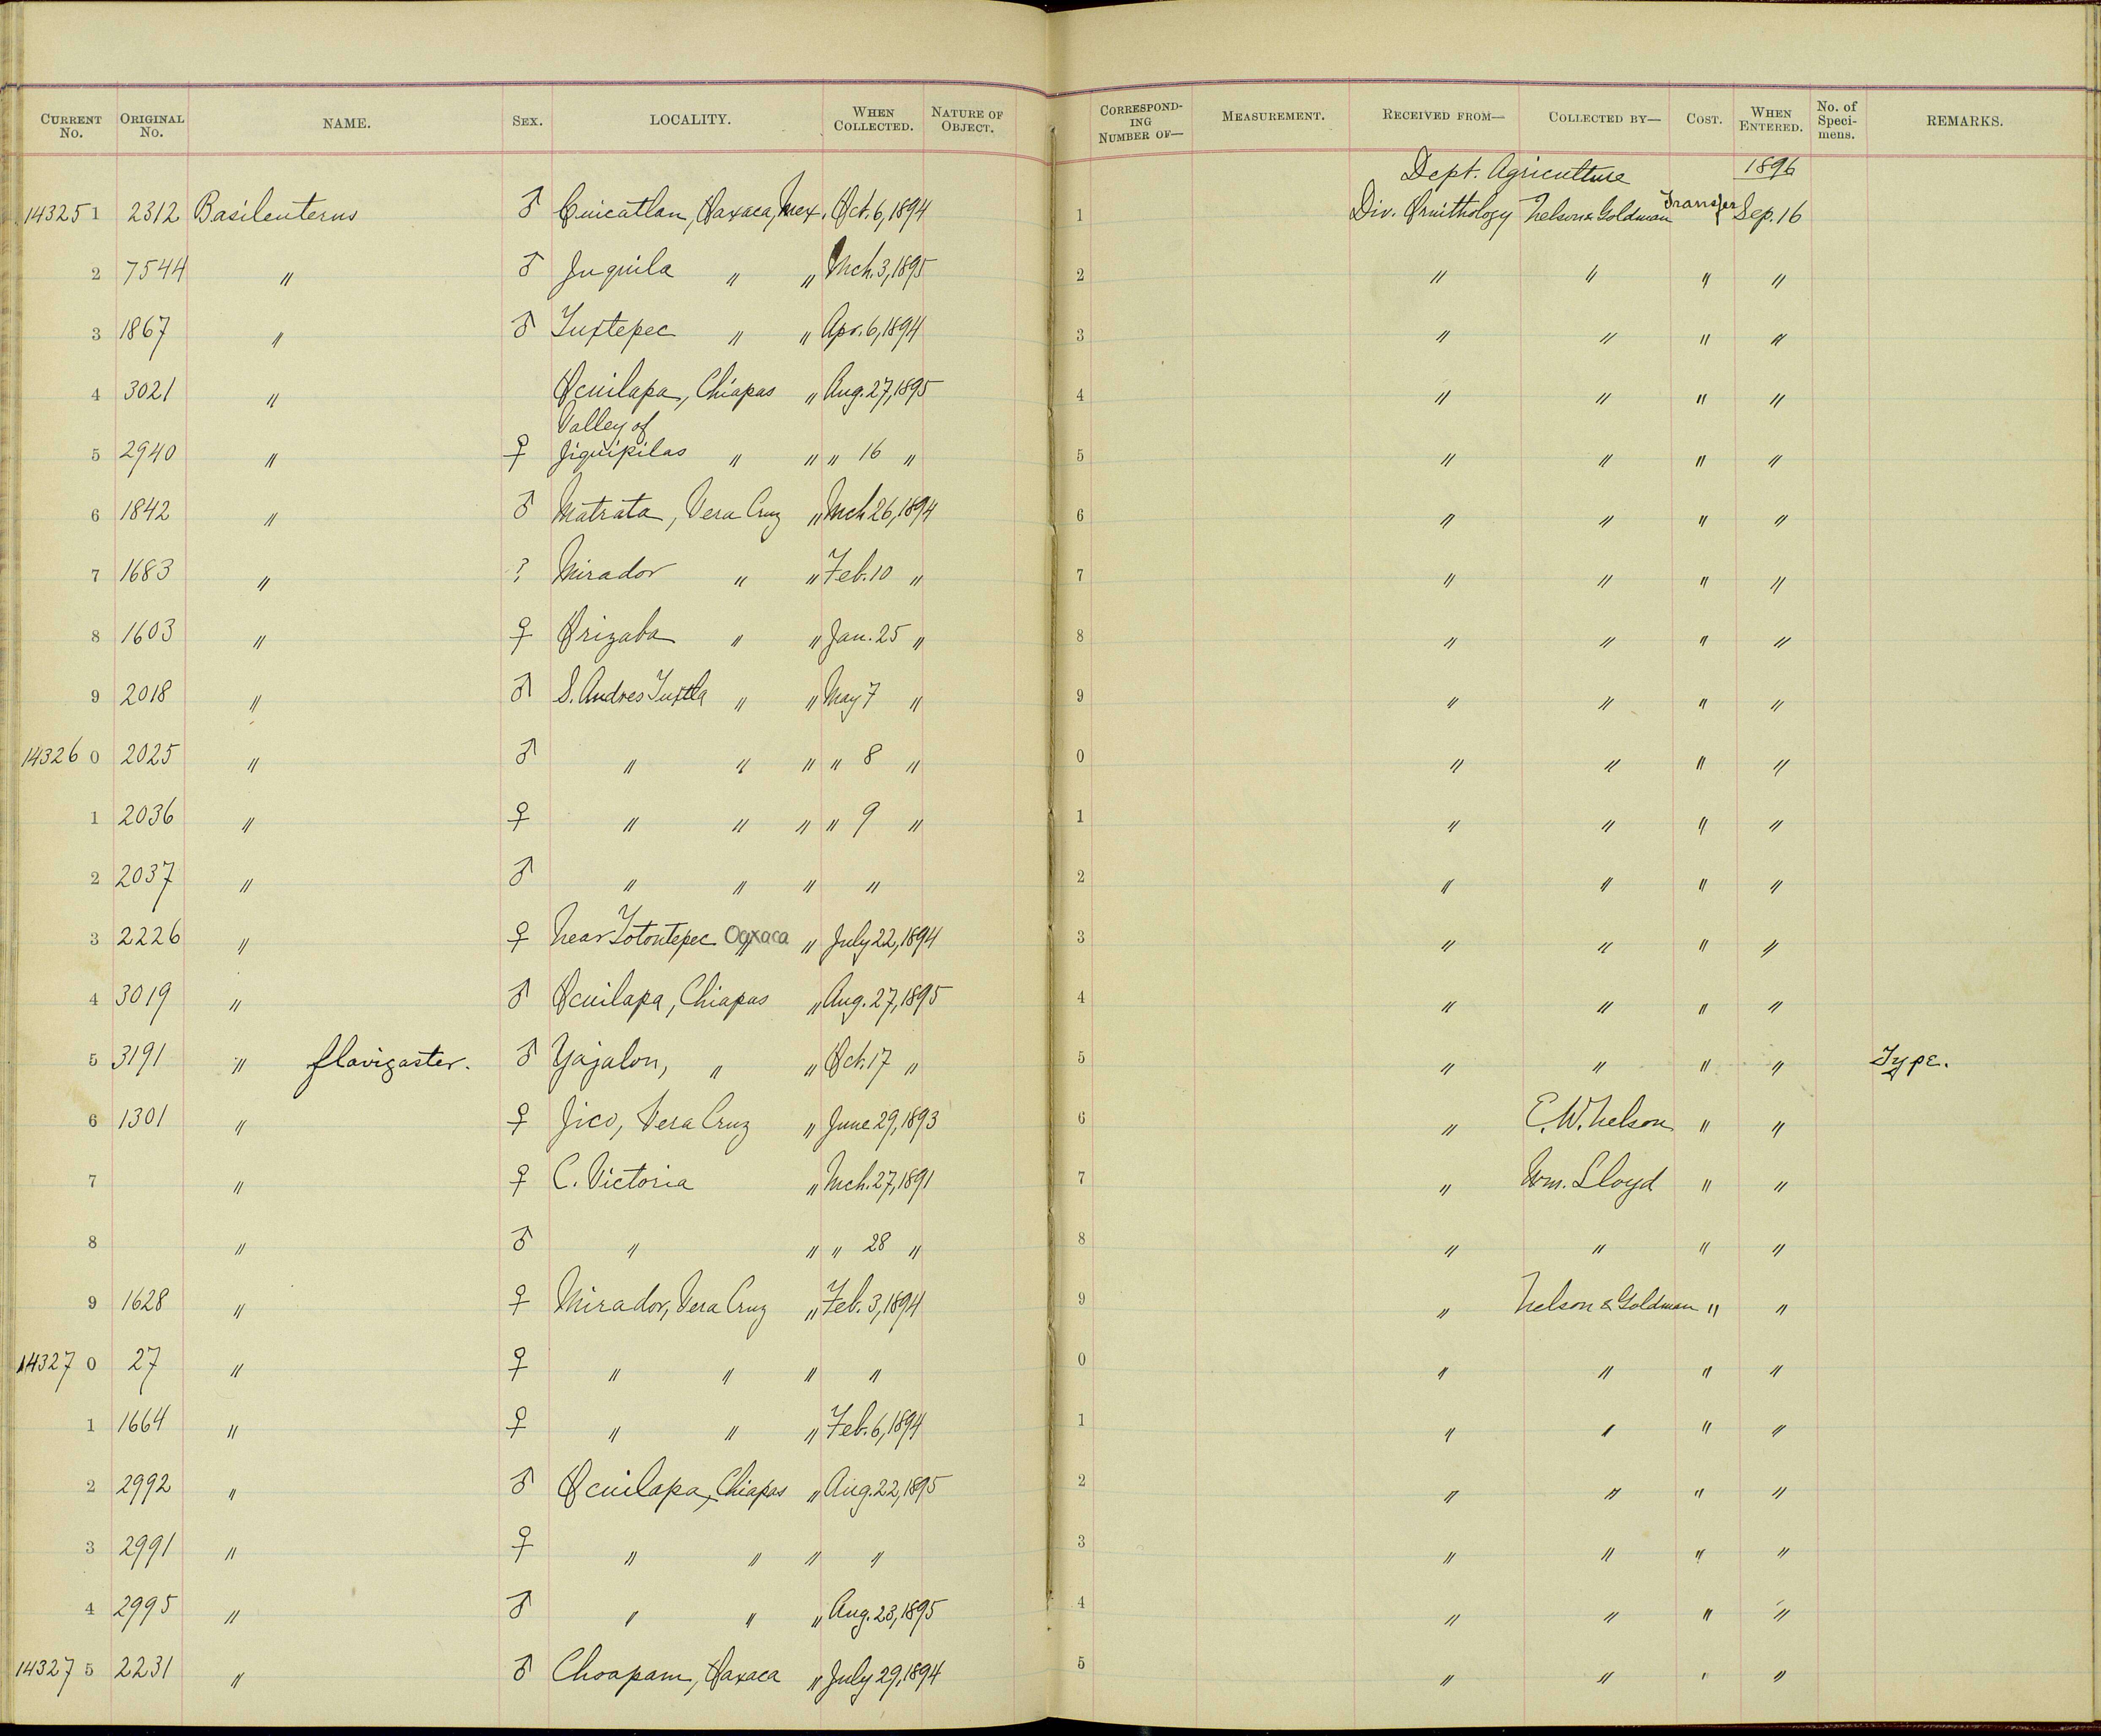 CURRENT No. ORIGINAL No. NAME. SEX. LOCALITY. WHEN COLLECTED. NATURE OF OBJECT. CORRESPONDING NUMBER OF— MEASUREMENT. RECEIVED FROM— COLLECTED BY— COST. WHEN ENTERED. No. of Specimens. REMARKS.
Dept. Agriculture 1896
14325 1 2312 Basileuterus ♂ Cuicatlan, Oaxaca, Mex. Oct. 6, 1894 1 Div. Ornithology Nelson & Goldman Transfer Sep. 16
2 7544 " ♂ Juquila " " Mch. 3, 1895 2 " " " "
3 1867 " ♂ Tuxtepec " " Apr. 6, 1894 3 " " " "
4 3021 " Ocuilapa, Chiapas " Aug. 27, 1895 4 " " " "
Valley of
5 2940 " ♀ Jiquipilas " " " 16 " 5 " " " "
6 1842 " ♂ Matrata, Vera Cruz " Mch 26, 1894 6 " " " "
7 1683 " ? Mirador " " Feb. 10 " 7 " " " "
8 1603 " ♀ Orizaba " " Jan. 25 " 8 " " " "
9 2018 " ♂ S. Andres Tuxtla " " May 7 " 9 " " " "
14326 0 2025 " ♂ " " " " 8 " 0 " " " "
1 2036 " ♀ " " " " 9 " 1 " " " "
2 2037 " ♂ " " " " 2 " " " "
3 2226 " ♀ Near Totontepec Oaxaca " July 22, 1894 3 " " " "
4 3019 " ♂ Ocuilapa, Chiapas " Aug. 27, 1895 4 " " " "
5 3191 " flavigaster. ♂ Yajalon, " " Oct. 17 " 5 " " " " Type.
6 1301 " ♀ Jico, Vera Cruz " June 29, 1893 6 " E. W. Nelson " "
7 " ♀ C. Victoria " Mch. 27, 1891 7 " Wm. Lloyd " "
8 " ♂ " " " 28 " 8 " " " "
9 1628 " ♀ Mirador, Vera Cruz " Feb. 3, 1894 9 " Nelson & Goldman " "
14327 0 27 " ♀ " " " " 0 " " " "
1 1664 " ♀ " " " Feb. 6, 1894 1 " " " "
2 2992 " ♂ Ocuilapa, Chiapas " Aug. 22, 1895 2 " " " "
3 2991 " ♀ " " " " 3 " " " "
4 2995 " ♂ " " " Aug. 23, 1895 4 " " " "
14327 5 2231 " ♂ Choapam, Oaxaca " July 29, 1894 5 " " " "